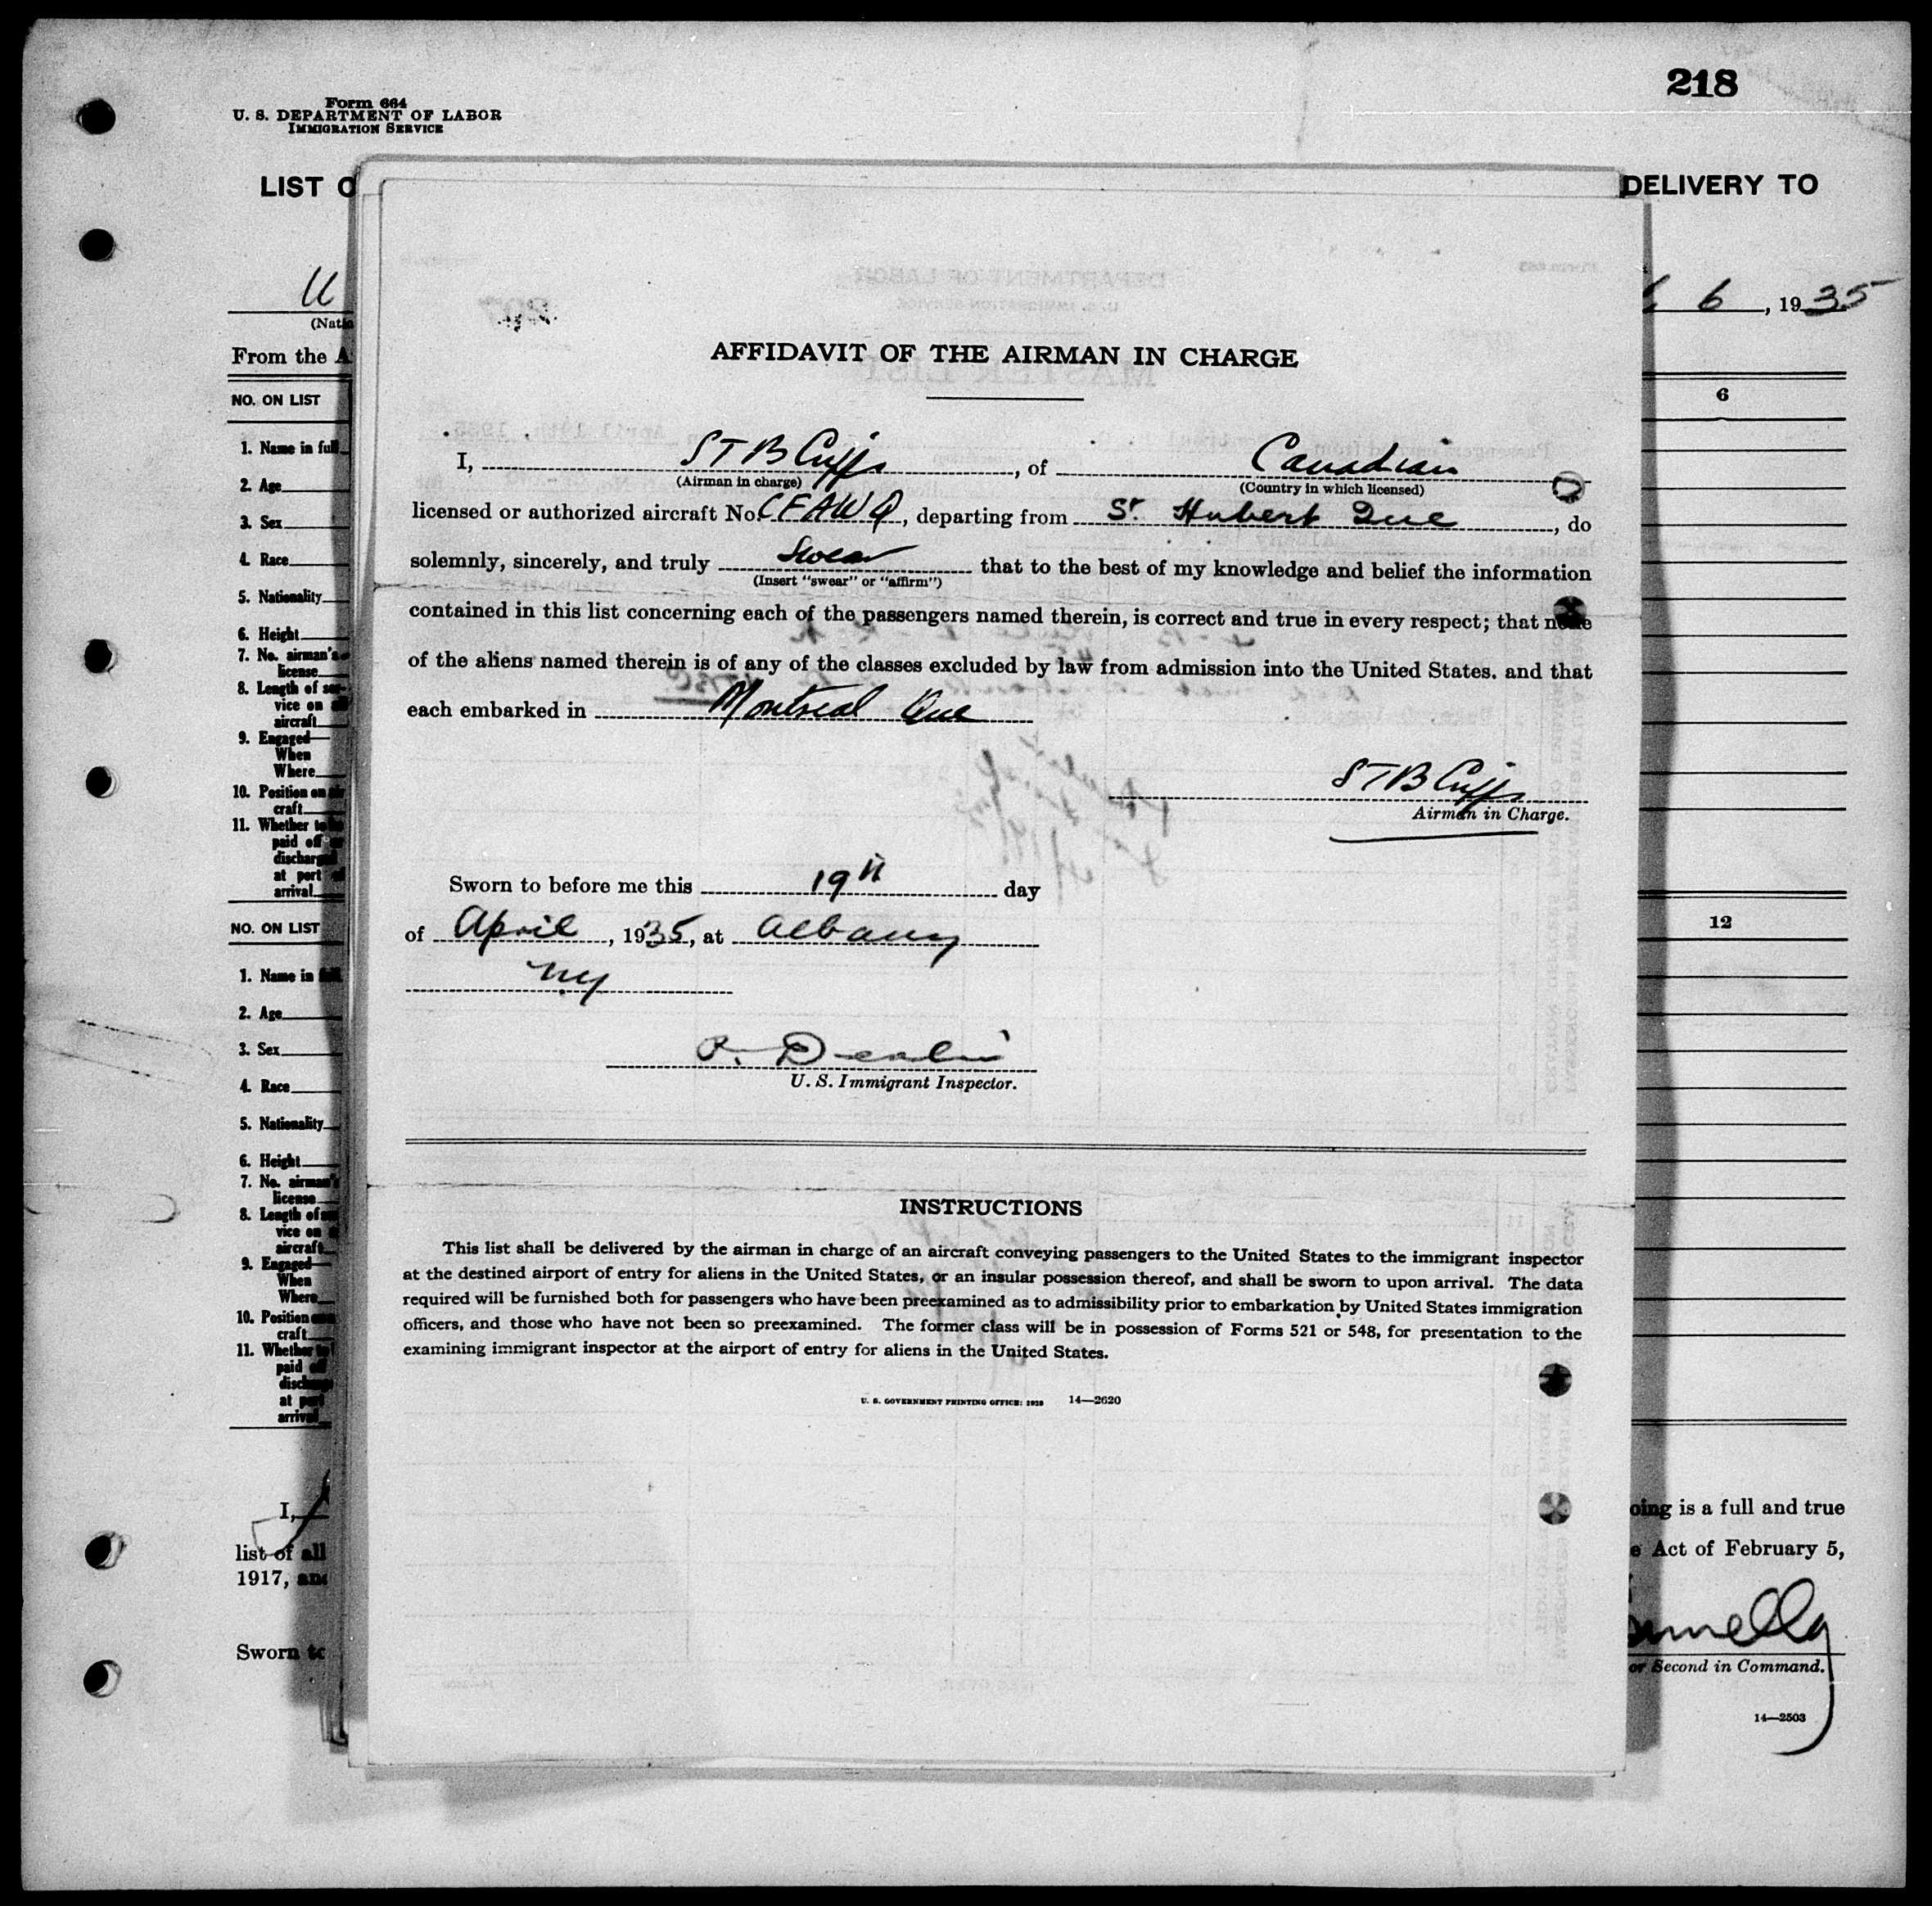 218
Form 664
U. S. DEPARTMENT OF LABOR
IMMIGRATION SERVICE
LIST O
DELIVERY TO
U
6, 1935
(Natio
From the A
NO. ON LIST
6
1. Name in full
2. Age
3. Sex
4. Race
5. Nationality
6. Height
7. No. airman's
license
8. Length of ser-
vice on
aircraft
9. Engaged—
When
Where
10. Position on air
craft
11. Whether to be
paid off or
discharged
at port of
arrival
NO. ON LIST
12
1. Name in full
2. Age
3. Sex
4. Race
5. Nationality
6. Height
7. No. airman's
license
8. Length of
vice on
aircraft
9. Engaged—
When
Where
10. Position on
craft
11. Whether to
paid off
discharge
at port
arrival
I,
list of all
1917, and
Sworn to
oing is a full and true
e Act of February 5,
or Second in Command.
14—2503
AFFIDAVIT OF THE AIRMAN IN CHARGE
I, S T B Cuffs, of Canadian
(Airman in charge) (Country in which licensed)
licensed or authorized aircraft No. CFAWQ, departing from St Hubert Que, do
solemnly, sincerely, and truly Swear that to the best of my knowledge and belief the information
(Insert "swear" or "affirm")
contained in this list concerning each of the passengers named therein, is correct and true in every respect; that none
of the aliens named therein is of any of the classes excluded by law from admission into the United States. and that
each embarked in Montreal Que
S T B Cuffs
Airman in Charge.
Sworn to before me this 19th day
of April, 1935, at Albany
NY
U. S. Immigrant Inspector.
INSTRUCTIONS
This list shall be delivered by the airman in charge of an aircraft conveying passengers to the United States to the immigrant inspector
at the destined airport of entry for aliens in the United States, or an insular possession thereof, and shall be sworn to upon arrival. The data
required will be furnished both for passengers who have been preexamined as to admissibility prior to embarkation by United States immigration
officers, and those who have not been so preexamined. The former class will be in possession of Forms 521 or 548, for presentation to the
examining immigrant inspector at the airport of entry for aliens in the United States.
U. S. GOVERNMENT PRINTING OFFICE: 14—2620